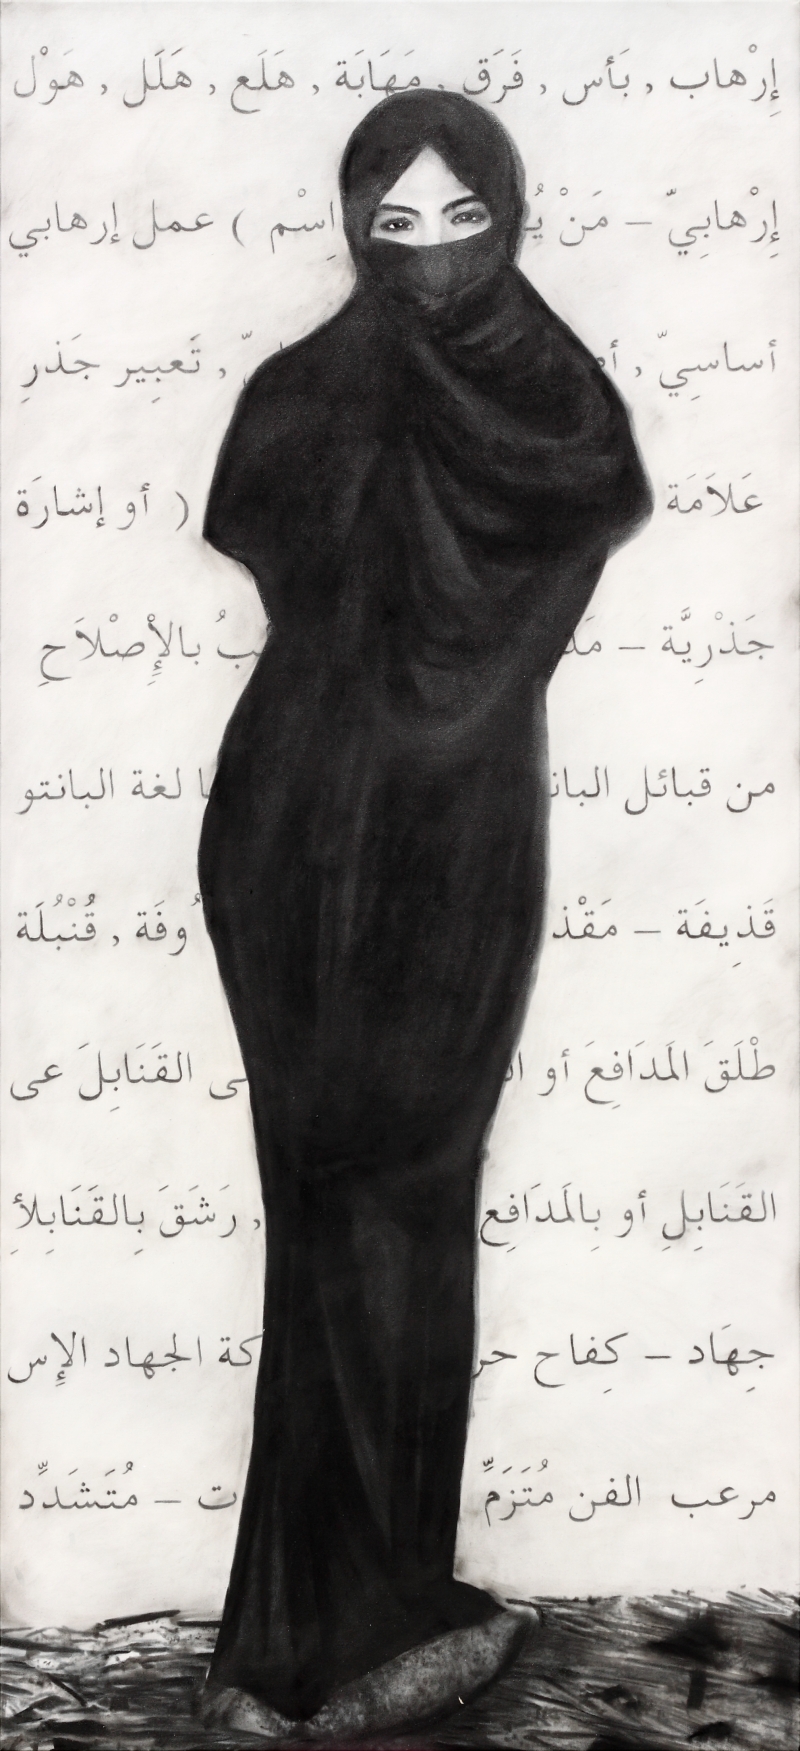 إِرْهاب , بَأس , فَرَق , مَهَابَة , هَلَع , هَلَل , هَوْل
إِرْهابِيّ – مَنْ اِسْم ) عمل إرهابي
أساسِيّ , , تَعبِير جَذرِ
عَلاَمَة ( أو إشارَة
جَذْرِيَّة – بالإِصْلاَحِ
من قبائل لغة البانتو
قَذِيفَة – مَقْذ وفَة , قُنْبُلَة
طْلَقَ المَدَافِعَ أو القَنَابِلَ عى
القَنَابِلِ أو بِالمَدَافِع , رَشَقَ بِالقَنَابِلأِ
جِهَاد – كِفاح حر كة الجهاد الإِس
مرعب الفن مُتَزَمِّ ت – مُتَشَدِّد